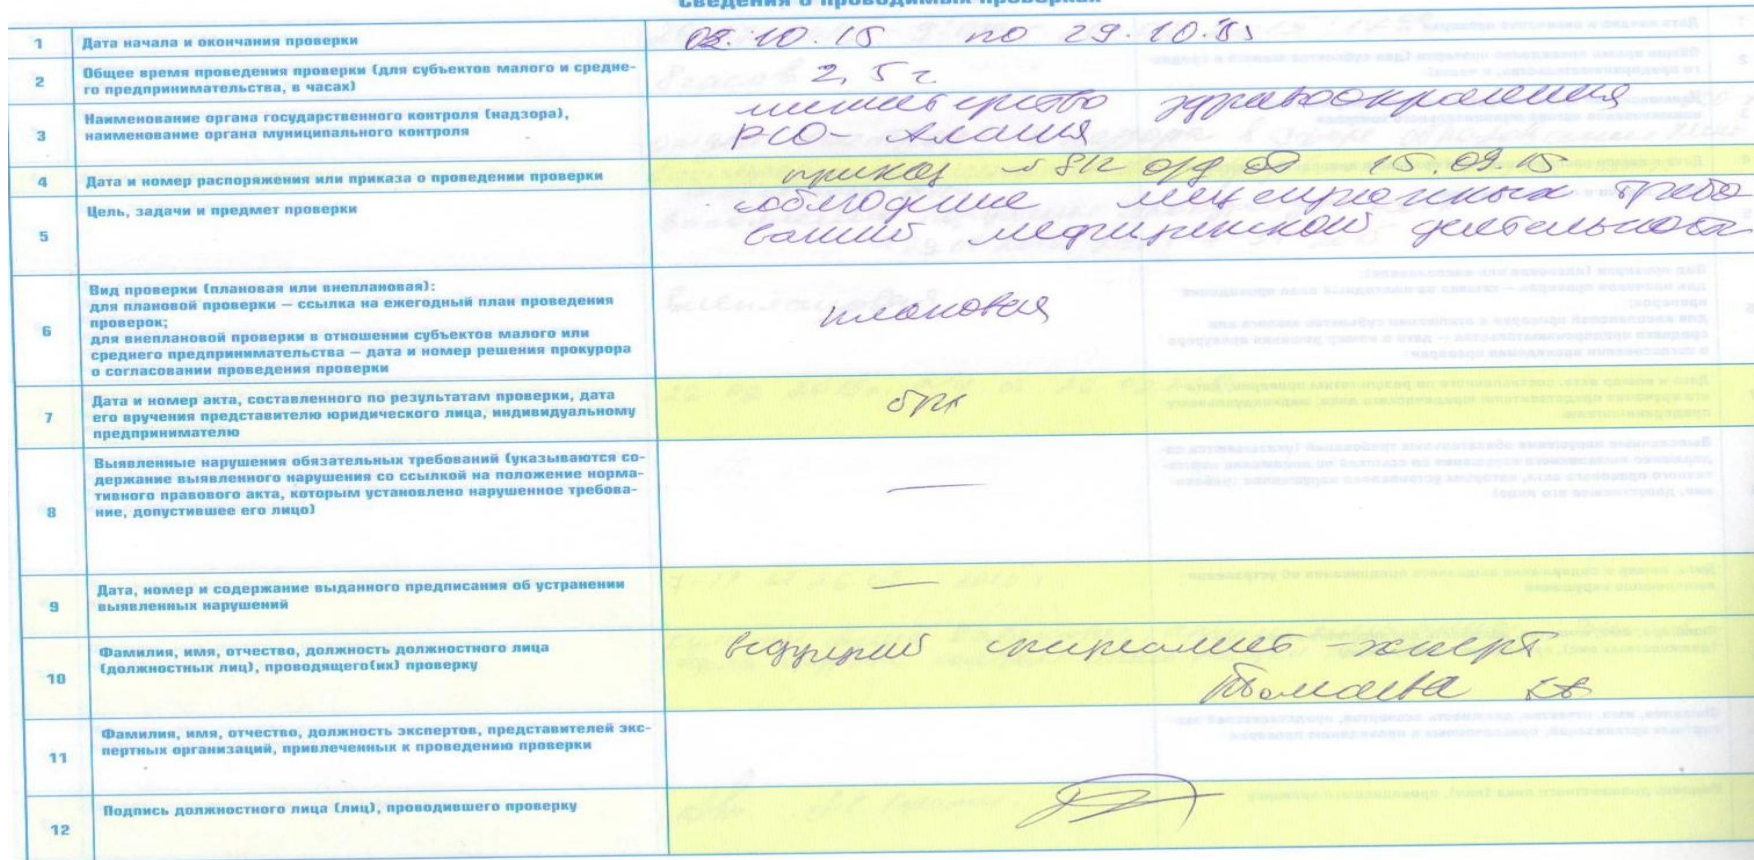 Сведения о проводимых проверках
1 Дата начала и окончания проверки
02.10.15 по 29.10.15
2 Общее время проведения проверки (для субъектов малого и средне-
го предпринимательства, в часах)
2,5 г
3 Наименование органа государственного контроля (надзора),
наименование органа муниципального контроля
министерство здравоохранения
РСО-Алания
4 Дата и номер распоряжения или приказа о проведении проверки
приказ 15.09.15
5 Цель, задачи и предмет проверки
соблюдение лицензионных требо
ваний медицинской деятельности
6 Вид проверки (плановая или внеплановая):
для плановой проверки — ссылка на ежегодный план проведения
проверок;
для внеплановой проверки в отношении субъектов малого или
среднего предпринимательства — дата и номер решения прокурора
о согласовании проведения проверки
плановая
7 Дата и номер акта, составленного по результатам проверки, дата
его вручения представителю юридического лица, индивидуальному
предпринимателю
8 Выявленные нарушения обязательных требований (указываются со-
держание выявленного нарушения со ссылкой на положение норма-
тивного правового акта, которым установлено нарушенное требова-
ние, допустившее его лицо)
—
9 Дата, номер и содержание выданного предписания об устранении
выявленных нарушений
—
10 Фамилия, имя, отчество, должность должностного лица
(должностных лиц), проводящего(их) проверку
ведущий специалист-эксперт
Томаева
11 Фамилия, имя, отчество, должность экспертов, представителей экс-
пертных организаций, привлеченных к проведению проверки
12 Подпись должностного лица (лиц), проводившего проверку